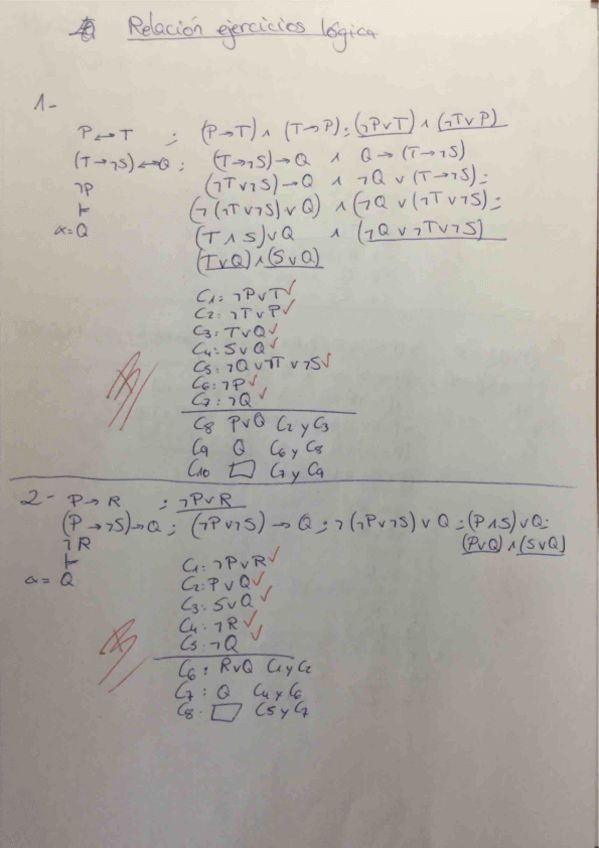 Relación ejercicios lógica
1-
P↔T ; (P→T) ∧ (T→P); (¬P∨T) ∧ (¬T∨P)
(T→¬S)↔Q ; (T→¬S)→Q ∧ Q→(T→¬S)
¬P (¬T∨¬S)→Q ∧ ¬Q ∨ (T→¬S);
⊢ (¬(¬T∨¬S)∨Q) ∧ (¬Q ∨ (¬T∨¬S);
α=Q (T∧S)∨Q ∧ (¬Q∨¬T∨¬S)
(T∨Q)∧(S∨Q)
C1: ¬P∨T ✓
C2: ¬T∨P ✓
C3: T∨Q ✓
C4: S∨Q ✓
C5: ¬Q∨¬T∨¬S ✓
C6: ¬P ✓
C7: ¬Q ✓
C8 P∨Q C2 y C3
C9 Q C6 y C8
C10 □ C7 y C9
2- P→R ; ¬P∨R
(P→¬S)→Q ; (¬P∨¬S)→Q ; ¬(¬P∨¬S)∨Q ; (P∧S)∨Q;
¬R (P∨Q)∧(S∨Q)
⊢
α= Q
C1: ¬P∨R ✓
C2: P∨Q ✓
C3: S∨Q ✓
C4: ¬R ✓
C5: ¬Q ✓
C6: R∨Q C1 y C2
C7: Q C4 y C6
C8: □ C5 y C7